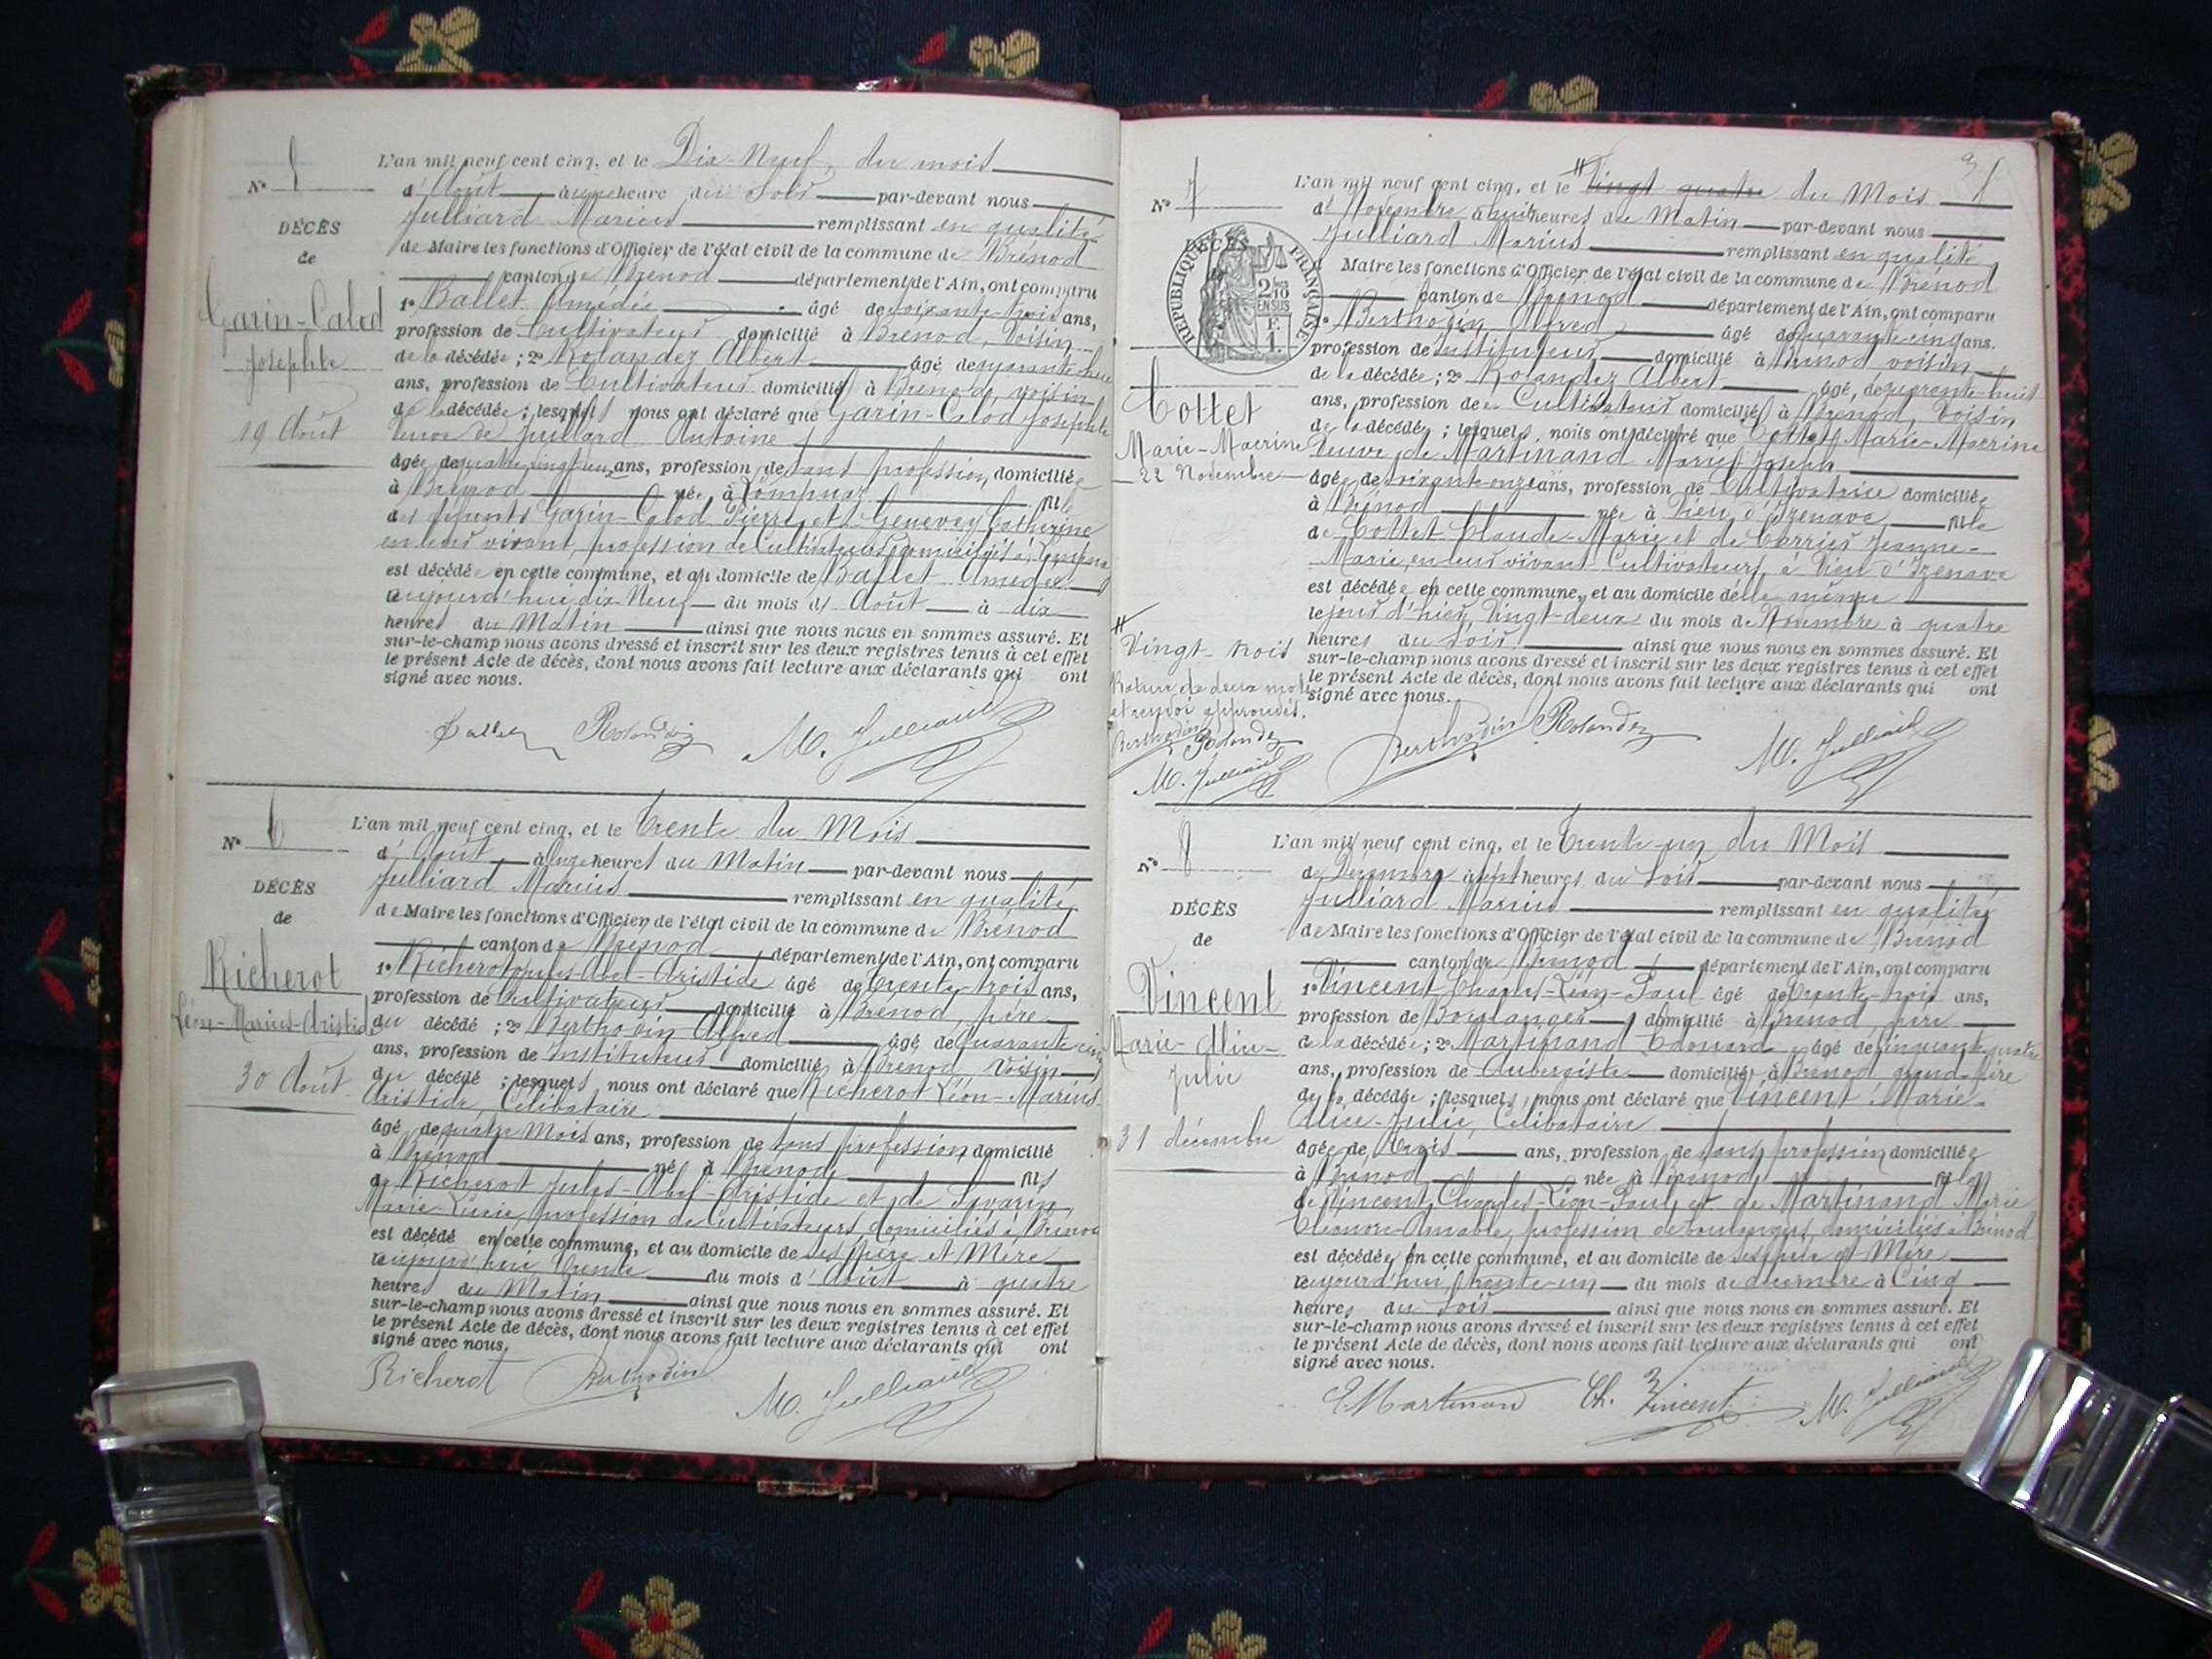 N° 5
DÉCÈS
de
Garin-Calod
Josephte
19 Août
L'an mil neuf cent cinq, et le Dix-Neuf, du mois
d'Août à une heure du Soir par-devant nous
Julliard Marius remplissant en qualité
de Maire les fonctions d'Officier de l'état civil de la commune de Brénod
canton de Brénod département de l'Ain, ont comparu
1° Ballet Amedée âgé de soixante-trois ans,
profession de Cultivateur domicilié à Brénod, Voisin
de la décédée ; 2° Rolandez Albert âgé de quarante-huit
ans, profession de Cultivateur domicilié à Brénod, voisin
de la décédée ; lesquels nous ont déclaré que Garin-Calod Josephte
Veuve de Julliard Antoine
âgée de quatre vingt un ans, profession de sans profession domiciliée
à Brénod née à Lompnaz fille
des defunts Garin-Calod Pierre et Genevey Catherine
en leur vivant, profession de Cultivateurs domiciliés à Lompnaz
est décédée en cette commune, et au domicile de Ballet Amedée
aujourd'hui dix Neuf du mois d'Août à dix
heures du Matin ainsi que nous nous en sommes assuré. Et
sur-le-champ nous avons dressé et inscrit sur les deux registres tenus à cet effet
le présent Acte de décès, dont nous avons fait lecture aux déclarants qui ont
signé avec nous.
Ballet Rolandez M. Julliard
N° 6
DÉCÈS
de
Richerot
Léon-Marius-Aristide
30 Août
L'an mil neuf cent cinq, et le Trente du Mois
d'Août à onze heures du Matin par-devant nous
Julliard Marius remplissant en qualité
de Maire les fonctions d'Officier de l'état civil de la commune de Brénod
canton de Brénod département de l'Ain, ont comparu
1° Richerot Jules-Abel-Aristide âgé de trente-trois ans,
profession de Cultivateur domicilié à Brénod, père
du décédé ; 2° Berthodin Alfred âgé de quarante cinq
ans, profession de Instituteur domicilié à Brénod, Voisin
du décédé ; lesquels nous ont déclaré que Richerot Léon-Marius-
Aristide, Célibataire
âgé de quatre Mois ans, profession de sans profession domicilié
à Brénod né à Brénod fils
de Richerot Jules-Abel-Aristide et de
Marie-Lucie, profession de Cultivateurs domiciliés à Brénod
est décédé en cette commune, et au domicile de ses père et Mère
aujourd'hui trente du mois d'Août à quatre
heures du Matin ainsi que nous nous en sommes assuré. Et
sur-le-champ nous avons dressé et inscrit sur les deux registres tenus à cet effet
le présent Acte de décès, dont nous avons fait lecture aux déclarants qui ont
signé avec nous.
Richerot Berthodin M. Julliard
N° 7
DÉCÈS
RÉPUBLIQUE FRANÇAISE
2/10 EN SUS
1 F.
Cottet
Marie-Macrine
22 Novembre
L'an mil neuf cent cinq, et le # Vingt quatre du Mois
de Novembre à huit heures du Matin par-devant nous
Julliard Marius remplissant en qualité
d Maire les fonctions d'Officier de l'état civil de la commune de Brénod
canton de Brénod département de l'Ain, ont comparu
1° Berthodin Alfred âgé de quarante cinq ans.
profession de Instituteur domicilié à Brénod voisin
de la décédée ; 2° Rolandez Albert âgé, de quarante-huit
ans, profession de Cultivateur domicilié à Brénod, Voisin
de la décédée ; lesquels, nous ont déclaré que Cottet Marie-Macrine
Veuve de Martinand Marie Joseph
âgée de soixante-onze ans, profession de Cultivatrice domiciliée
à Brénod née à Vieu d'Izenave fille
de Cottet Claude-Marie et de Carrier Jeanne-
Marie, en leur vivant Cultivateurs, à Vieu d'Izenave
est décédée en cette commune, et au domicile d'elle même
le jour d'hier, Vingt-deux du mois de Novembre à quatre
heures du Soir ainsi que nous nous en sommes assuré. Et
sur-le-champ nous avons dressé et inscrit sur les deux registres tenus à cet effet
le présent Acte de décès, dont nous avons fait lecture aux déclarants qui ont
signé avec nous.
Berthodin Rolandez M. Julliard
#
Vingt-trois
Rature de deux mots
et renvoi approuvés.
Berthodin
Rolandez
M. Julliard
N° 8
DÉCÈS
de
Vincent
Marie-Alice-
Julie
31 décembre
L'an mil neuf cent cinq, et le Trente-un du Mois
de Décembre à sept heures du Soir par-devant nous
Julliard Marius remplissant en qualité
de Maire les fonctions d'Officier de l'état civil de la commune de Brénod
canton de Brénod département de l'Ain, ont comparu
1° Vincent Charles-Léon-Paul âgé de trente-trois ans,
profession de Boulanger domicilié à Brénod, père
de la décédée ; 2° Martinand Edouard âgé de cinquante quatre
ans, profession de Aubergiste domicilié à Brénod grand-père
de la décédée ; lesquels, nous ont déclaré que Vincent Marie-
Alice-Julie, Célibataire
âgée de trois ans, profession de sans profession domiciliée
à Brénod née à Brénod fille
de Vincent Charles-Léon-Paul et de Martinand Marie
Eléonore-Amable, profession de boulangers, domiciliés à Brénod
est décédée en cette commune, et au domicile de ses père et Mère
aujourd'hui trente-un du mois de décembre à Cinq
heures du Soir ainsi que nous nous en sommes assuré. Et
sur-le-champ nous avons dressé et inscrit sur les deux registres tenus à cet effet
le présent Acte de décès, dont nous avons fait lecture aux déclarants qui ont
signé avec nous.
E. Martinand Ch. Vincent M. Julliard